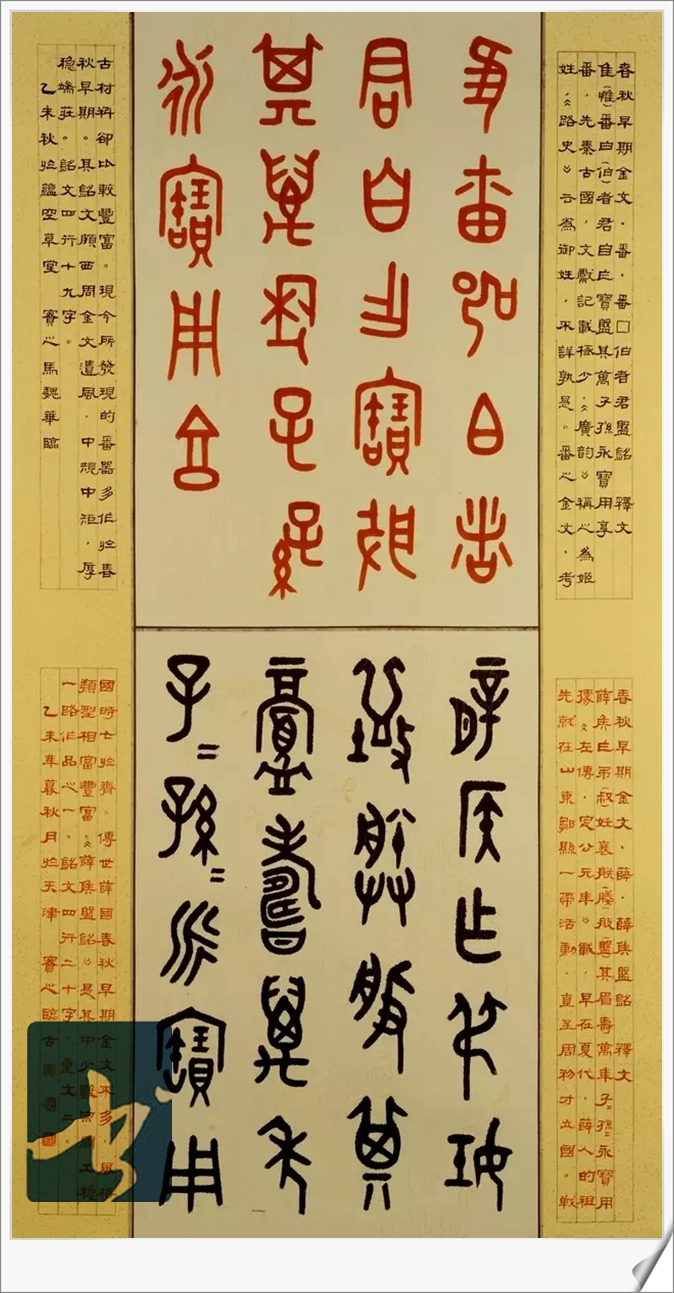 春秋早期金文·番·番□伯者君盤銘 釋文
隹(惟)番白(伯)者君自乍寶盤其萬子孫永寶用享
番·先秦古國·文獻記載極少·《廣韵》稱之為姬
姓,《路史》云為御姓,不詳孰是。番之金文·考
隹番白者
君自乍寶般
其萬年子孫
永寶用亯
古材料卻比較豐富。現今所發現的番器多作於春
秋早期。其銘文頗西周金文遺風·中規中矩,厚
穩端莊。銘文四行十九字。
乙未秋於蘊空草堂 賓之馬魏華臨
春秋早期金文·薛·薛侯盤銘 釋文
薛侯乍弔(叔)妊襄朕(媵)般(盤)其眉壽萬年子=孫=永寶用
據《左傳·定公元年》載·早在夏代·薛人的祖
先就在山東鄒縣一帶活動·直至周初才立國。戰
薛侯乍弔妊
襄朕般其
眉壽萬年
子=孫=永寶用
國時亡於齊。傳世薛國春秋早期金文不多
類型相當豐富。《薛侯盤銘》是其中少數工穩
一路作品之一。銘文四行二十字,重文二。
乙未年暮秋月於天津 賓之臨古
书